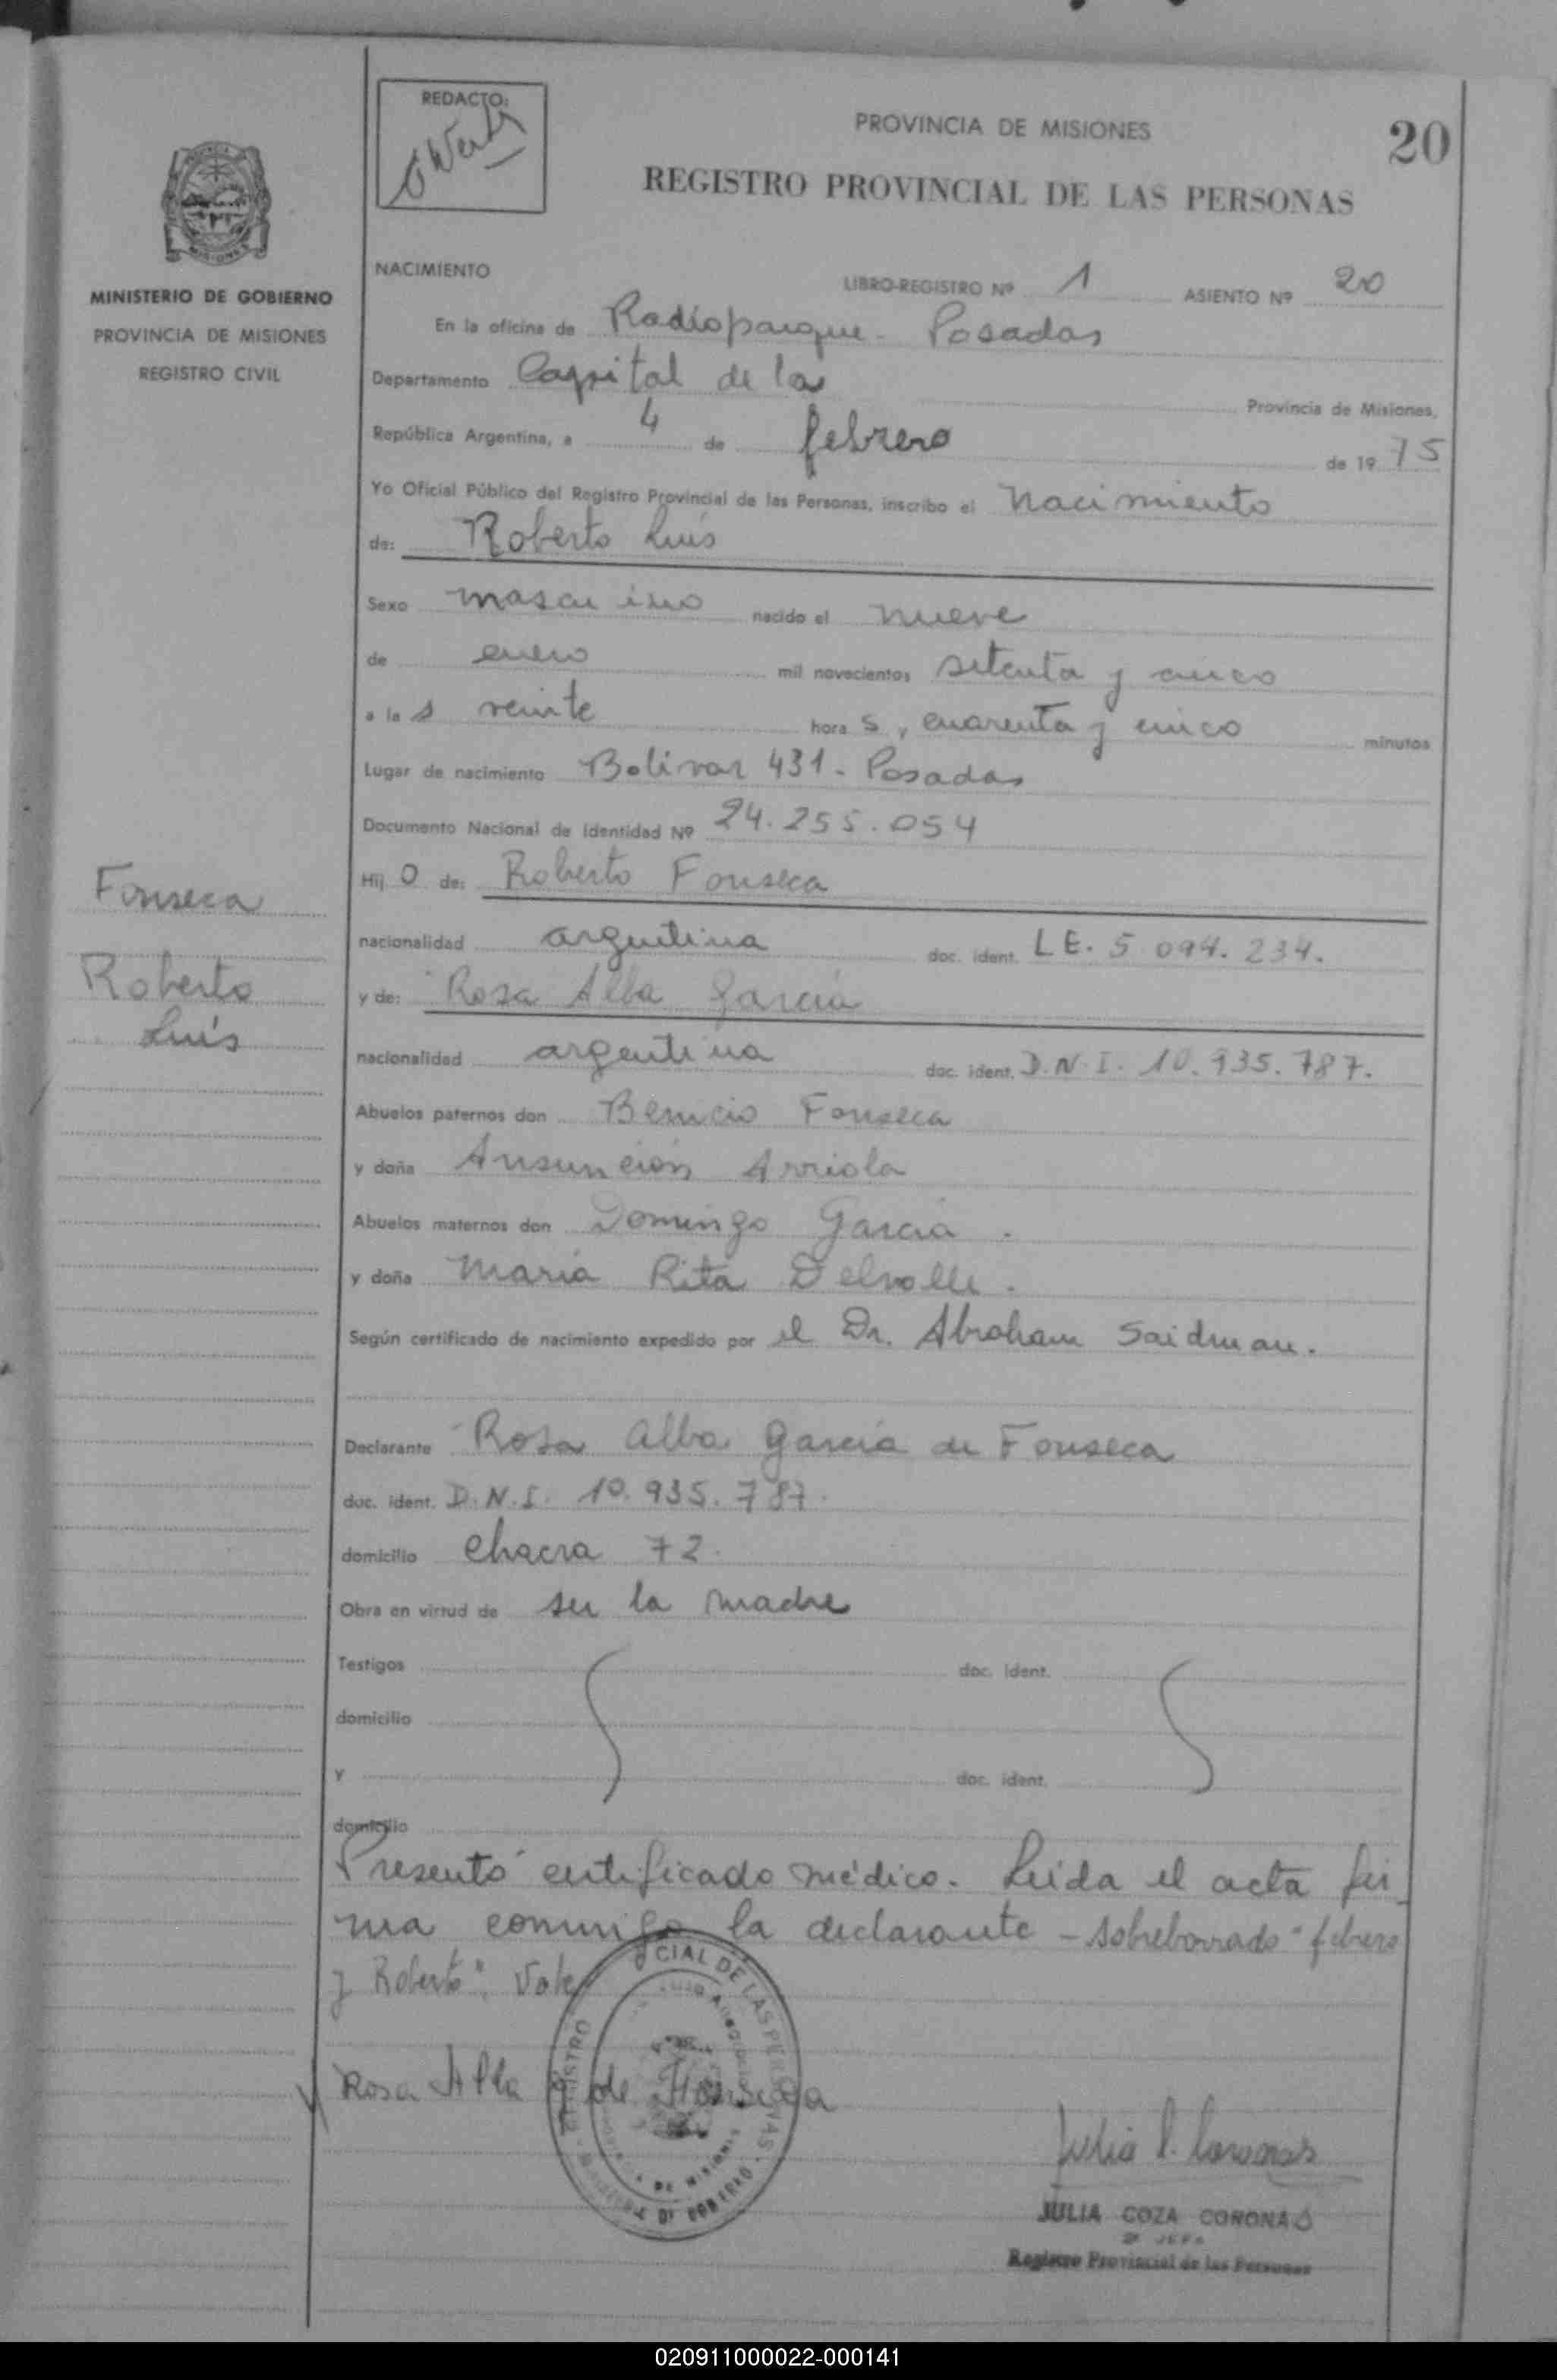 REDACTO:
PROVINCIA DE MISIONES
20
REGISTRO PROVINCIAL DE LAS PERSONAS
MISIONES
MINISTERIO DE GOBIERNO
PROVINCIA DE MISIONES
REGISTRO CIVIL
NACIMIENTO LIBRO-REGISTRO Nº 1 ASIENTO Nº 20
En la oficina de Radioparque - Posadas
Departamento Capital de la Provincia de Misiones,
República Argentina, a 4 de febrero de 19 75
Yo Oficial Público del Registro Provincial de las Personas, inscribo el Nacimiento
de: Roberto Luís
Sexo mascu ino nacido el nueve
de enero mil novecientos setenta y cinco
a la s veinte hora s, cuarenta y cinco minutos
Lugar de nacimiento Bolivar 431 - Posadas
Documento Nacional de Identidad Nº 24.255.054
Hij o de: Roberto Fonseca
nacionalidad argentina doc. ident. L E. 5 094. 234.
y de: Rosa Alba García
nacionalidad argentina doc. ident. D.N.I. 10.935.787.
Abuelos paternos don Benicio Fonseca
y doña Ansunción Arriola
Abuelos maternos don Domingo García.
y doña María Rita Delvalle.
Según certificado de nacimiento expedido por el Dr. Abraham Saidman.
Declarante Rosa Alba García de Fonseca
doc. ident. D.N.I. 10.935.787.
domicilio Chacra 72.
Obra en virtud de ser la madre
Testigos doc. ident.
domicilio
y doc. ident.
domicilio
Presentó certificado médico. Leída el acta fir
ma conmigo la declarante - sobreborrado "febrero
y Roberto": Vale
Fonseca
Roberto
Luís
Rosa Alba G de Fonseca
Julia C. Coronas
JULIA COZA CORONAS
Registro Provincial de las Personas
020911000022-000141